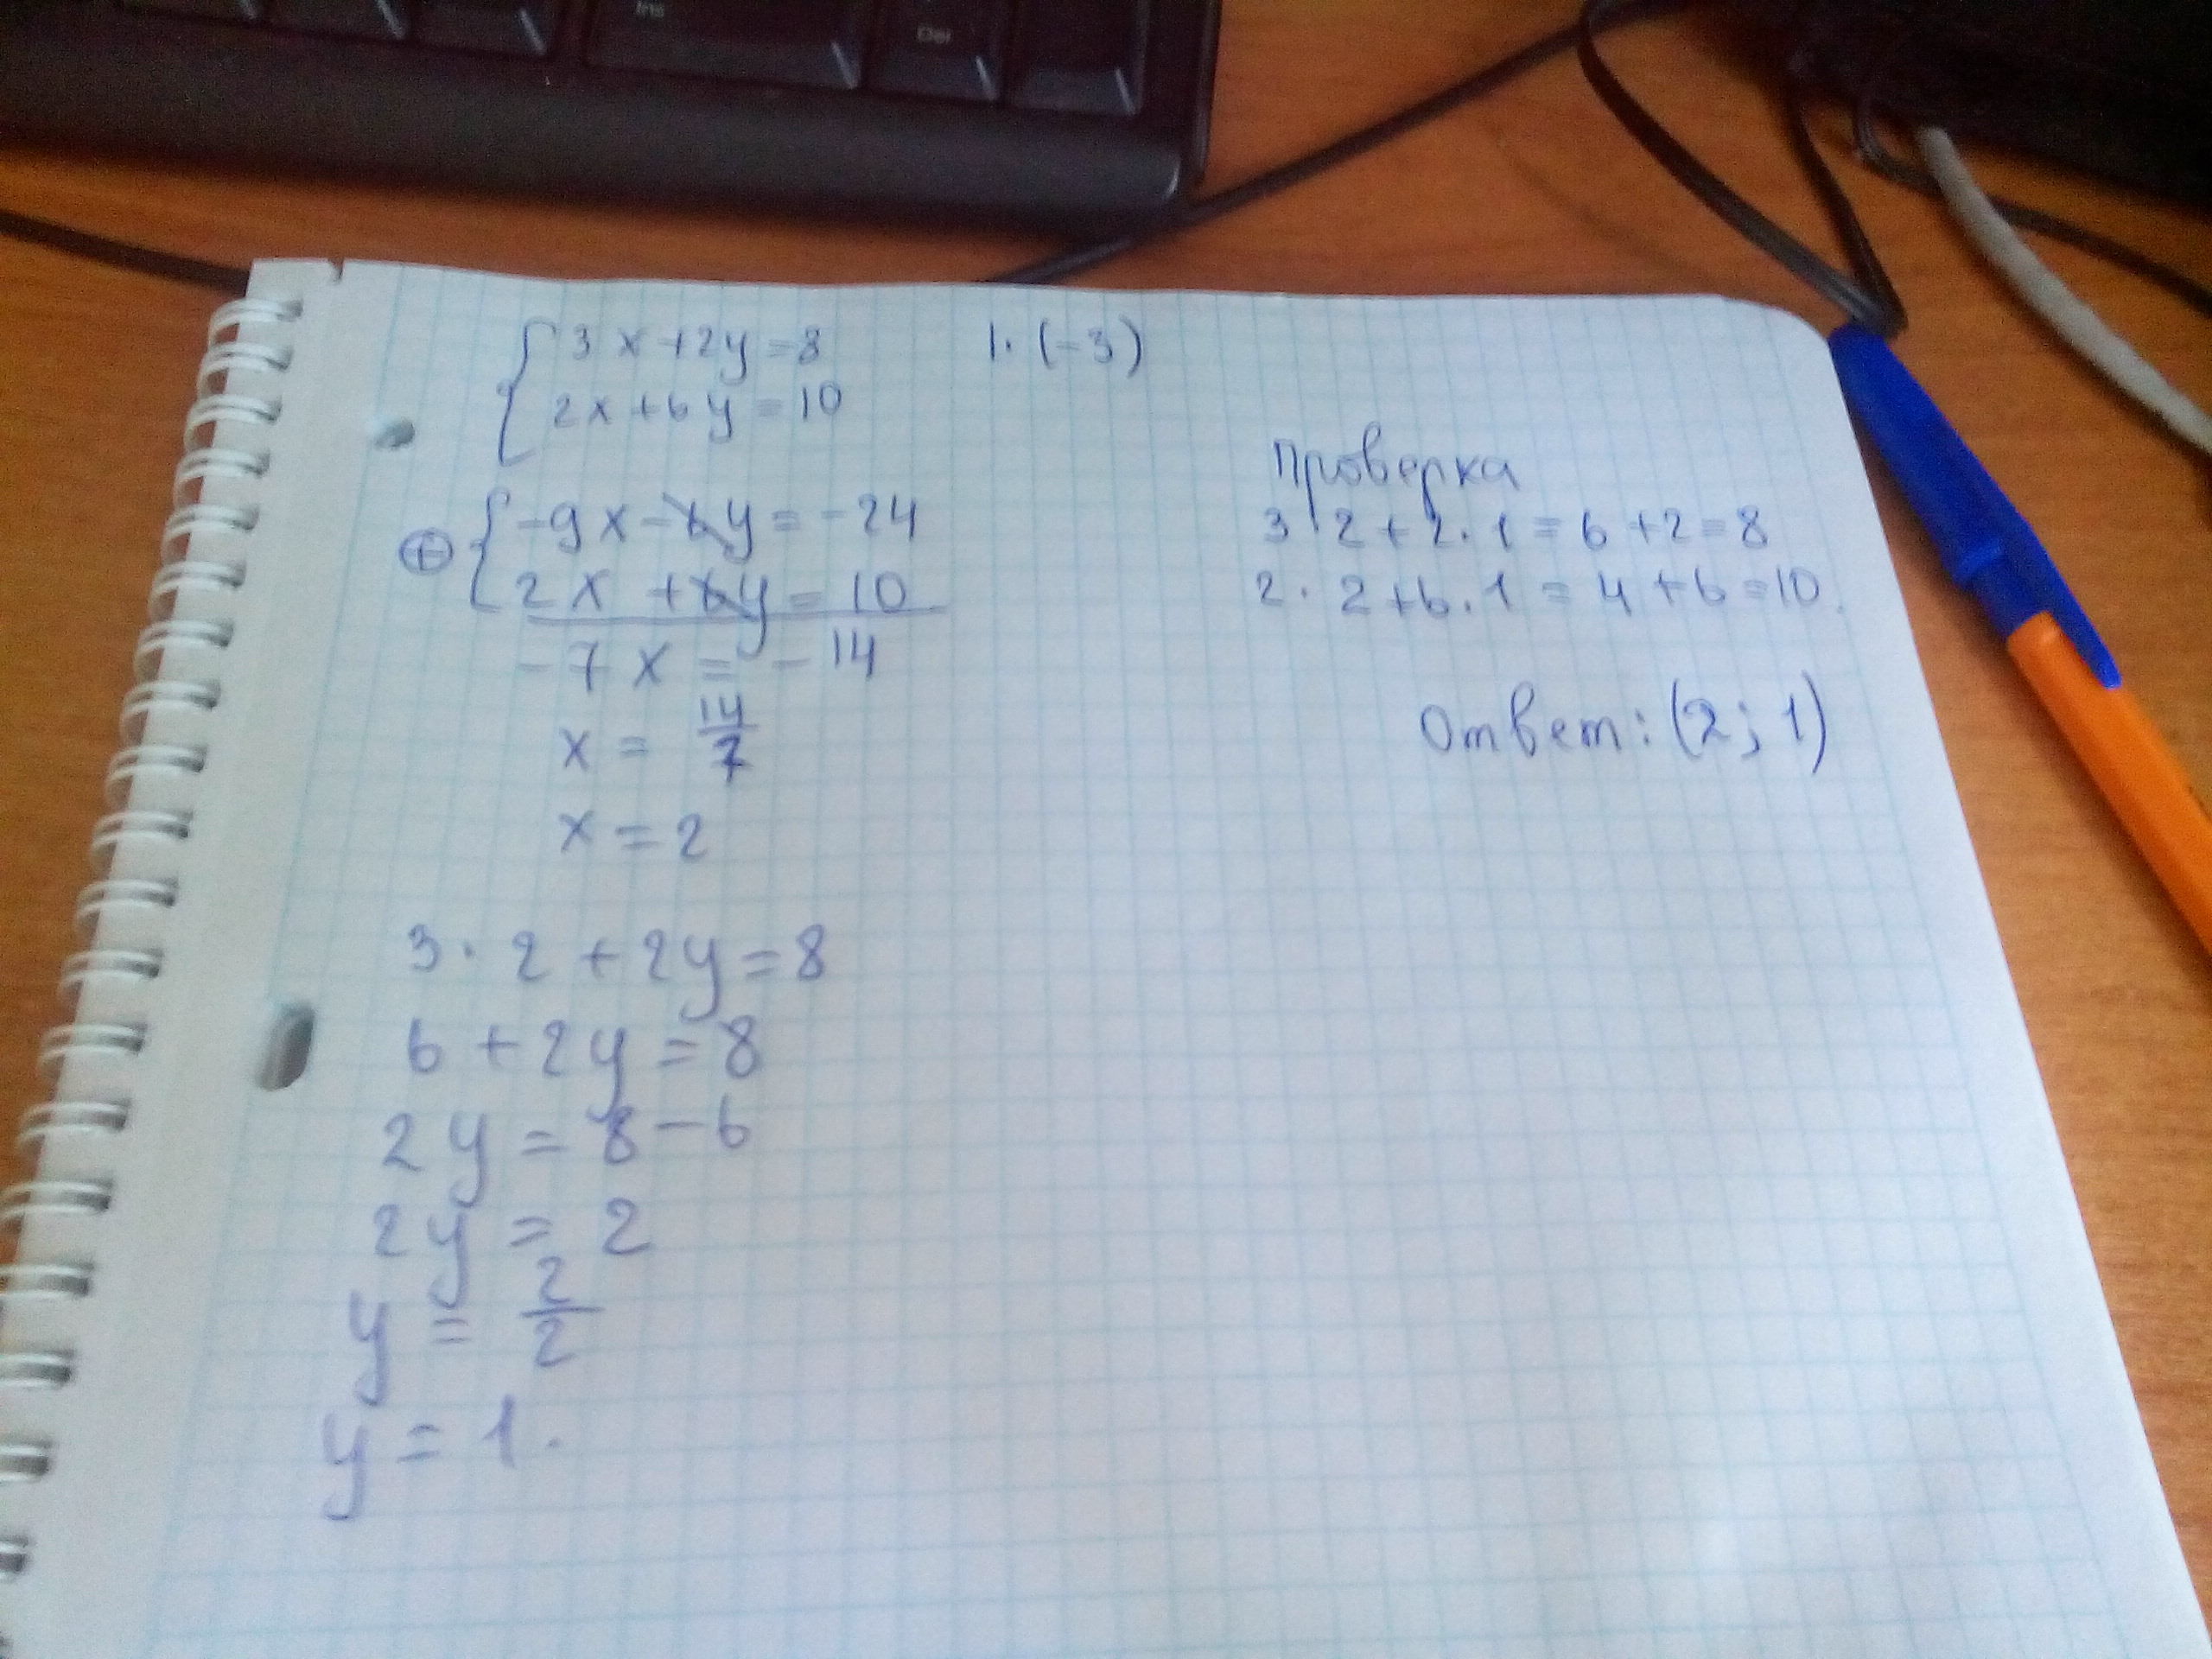 Ins
Del
3x+2y=8 |·(-3)
2x+6y=10
-9x-6y=-24
2x+6y=10
-7x=-14
x=14/7
x=2
3·2+2y=8
6+2y=8
2y=8-6
2y=2
y=2/2
y=1.
Проверка
3·2+2·1=6+2=8
2·2+6·1=4+6=10.
Ответ: (2; 1)